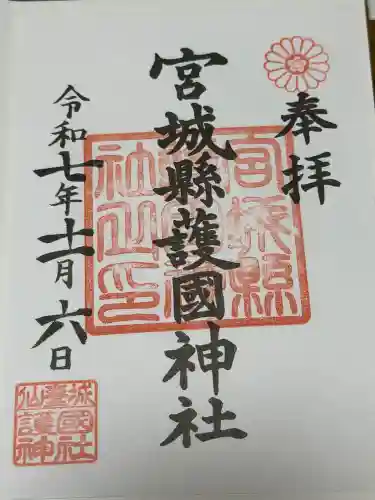 奉拝
宮城縣護國神社
令和七年十一月六日
宮城縣
護國神
社之印
仙臺城
護國
神社